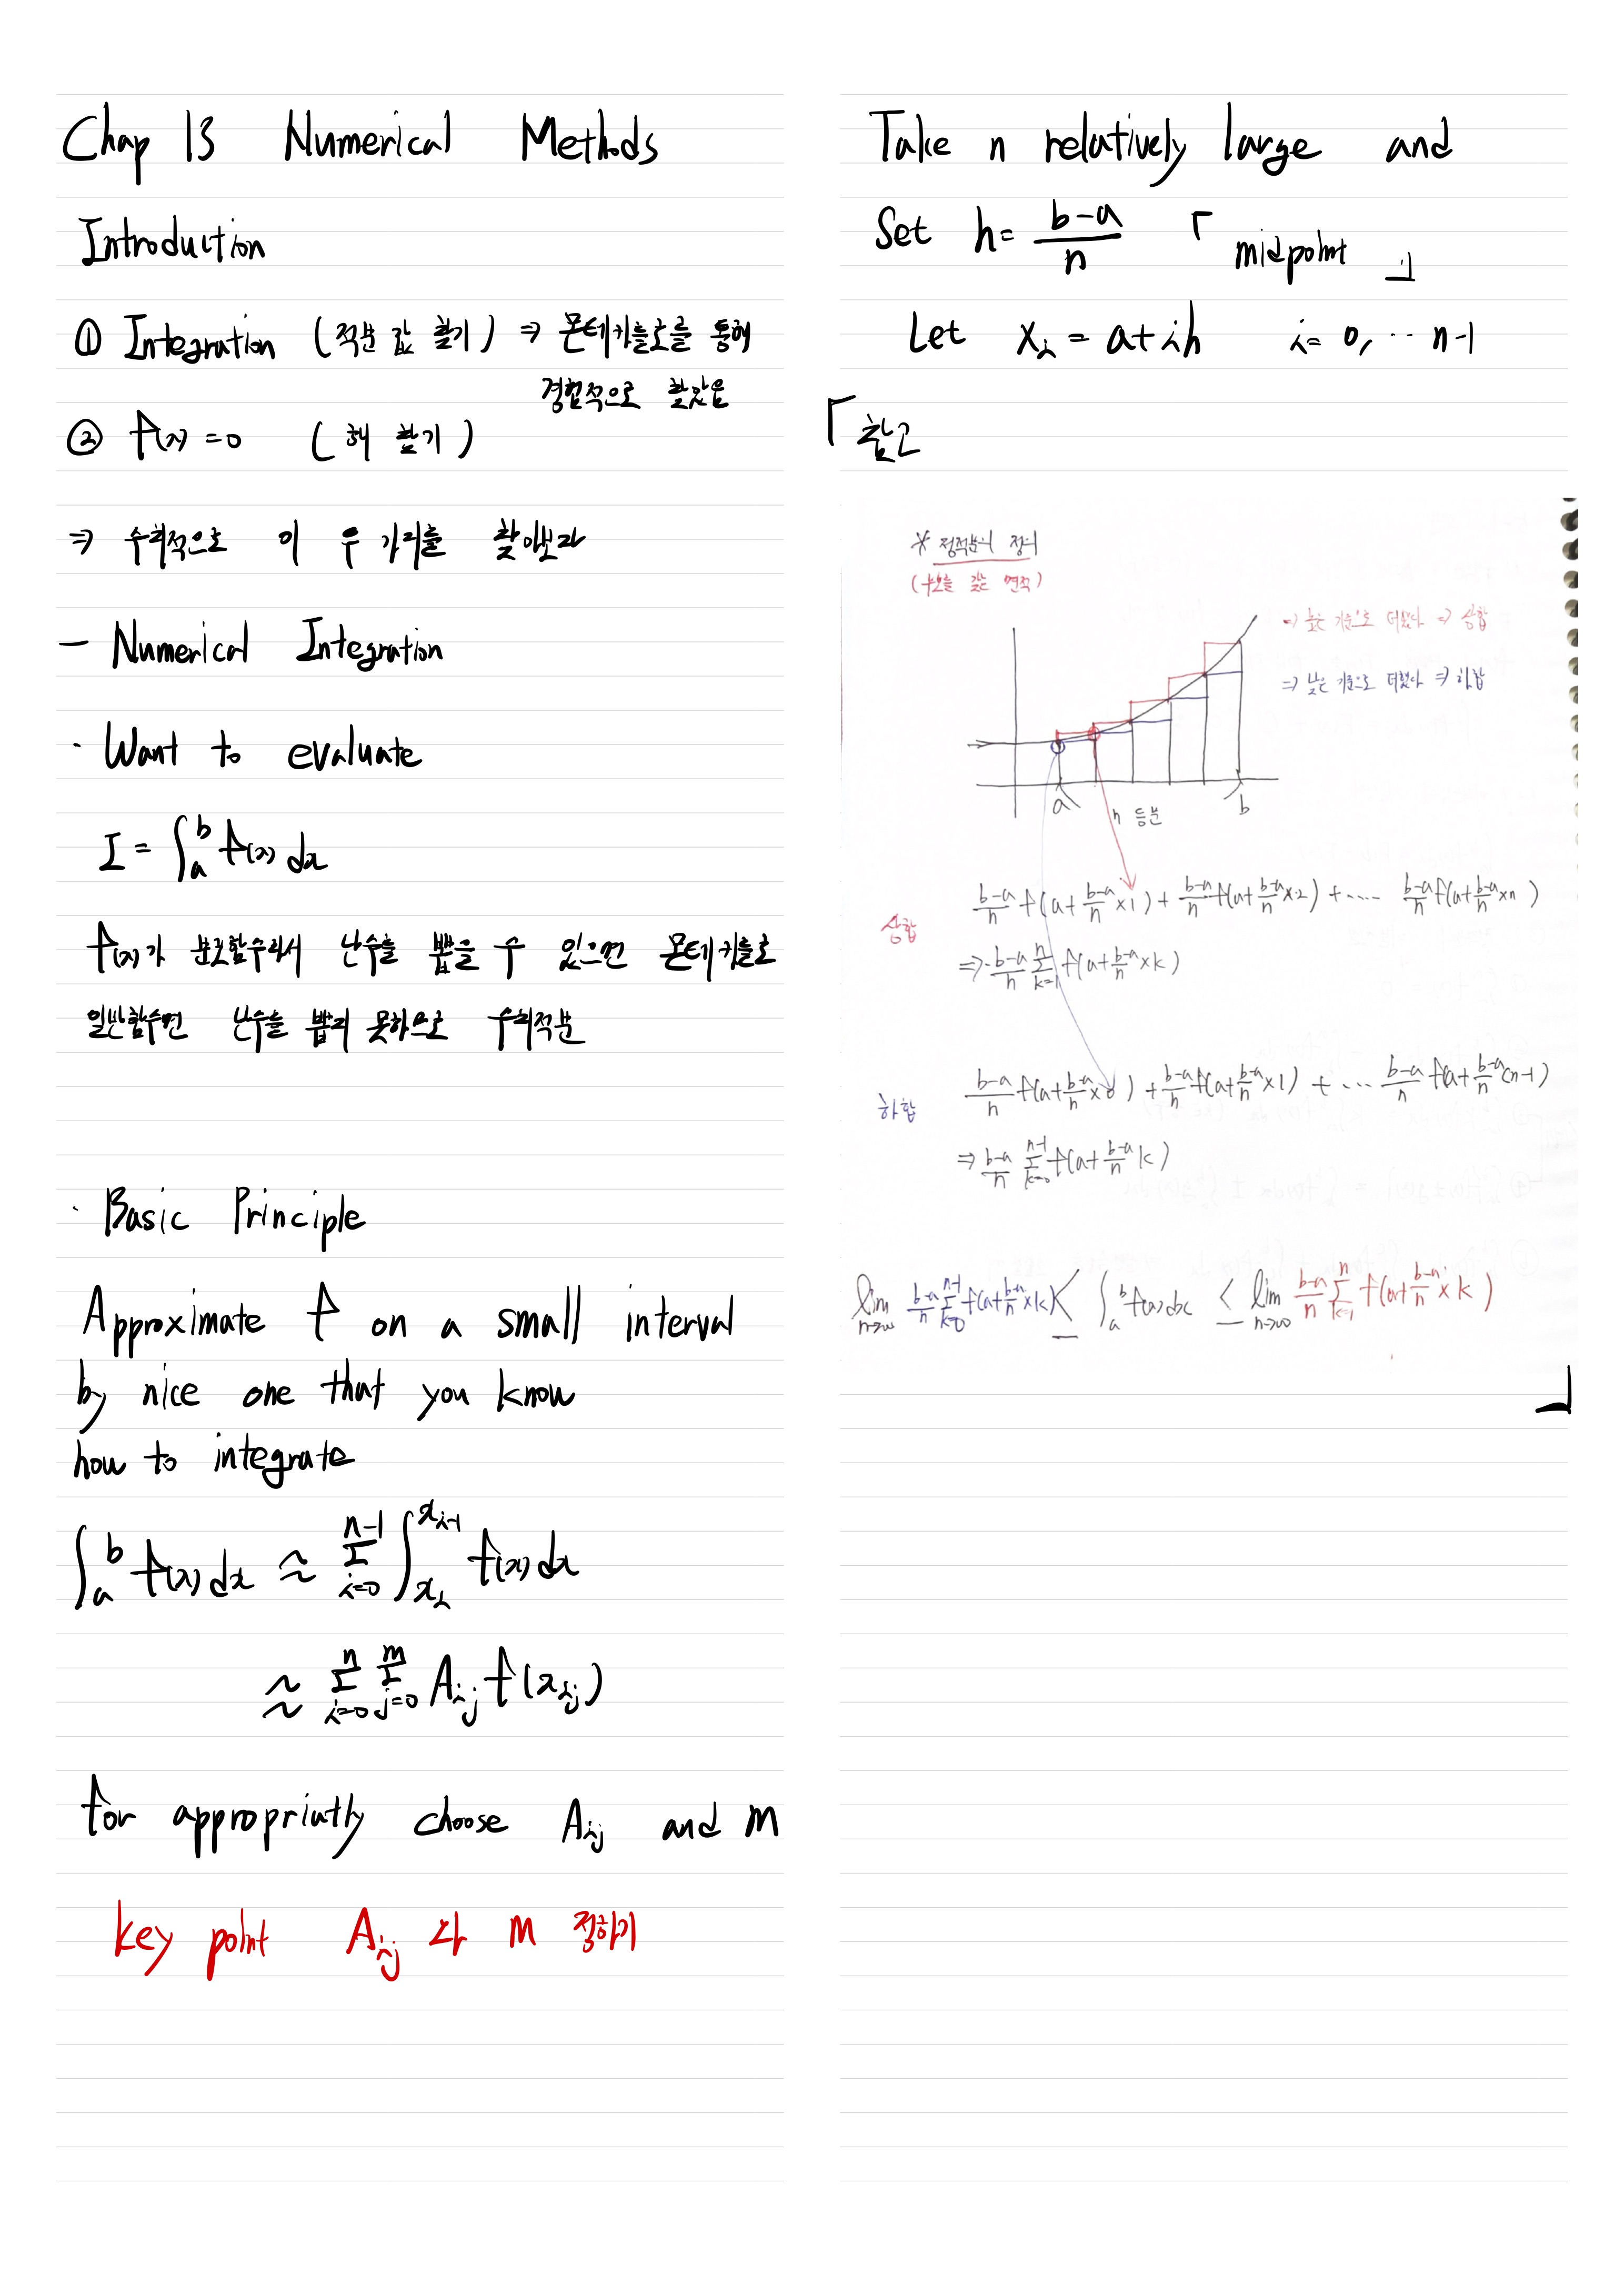 Chap 13 Numerical Methods
Introduction
① Integration (적분 값 찾기) ⇒ 몬테카를로를 통해
경험적으로 찾았음
② f(x) = 0 (해 찾기)
⇒ 수치적으로 이 두 가지를 찾아보자
— Numerical Integration
· Want to evaluate
I = ∫_a^b f(x) dx
f(x)가 분포함수라서 난수를 뽑을 수 있으면 몬테카를로
일반함수면 난수를 뽑지 못하므로 수치적분
· Basic Principle
Approximate f on a small interval
by nice one that you know
how to integrate
∫_a^b f(x) dx ≈ Σ_{i=0}^{n-1} ∫_{x_i}^{x_{i-1}} f(x) dx
≈ Σ_{i=0}^{n} Σ_{j=0}^{m} A_{ij} f(x_{ij})
for appropriatly choose A_{ij} and m
key point A_{ij} 와 m 정하기
Take n relatively large and
Set h = \frac{b-a}{n} 「 midpoint 」
Let x_i = a + ih i = 0, ⋯ n-1
「 참고
* 정적분의 정의
(부호를 갖는 면적)
⇒ 높은 기준으로 더했다 ⇒ 상합
⇒ 낮은 기준으로 더했다 ⇒ 하합
a n 등분 b
상합 \frac{b-a}{n} f(a + \frac{b-a}{n} × 1) + \frac{b-a}{n} f(a + \frac{b-a}{n} × 2) + ···· \frac{b-a}{n} f(a + \frac{b-a}{n} × n)
⇒ \frac{b-a}{n} Σ_{k=1}^{n} f(a + \frac{b-a}{n} × k)
하합 \frac{b-a}{n} f(a + \frac{b-a}{n} × 0) + \frac{b-a}{n} f(a + \frac{b-a}{n} × 1) + ··· \frac{b-a}{n} f(a + \frac{b-a}{n} (n-1))
⇒ \frac{b-a}{n} Σ_{k=0}^{n-1} f(a + \frac{b-a}{n} k)
lim_{n→∞} \frac{b-a}{n} Σ_{k=0}^{n-1} f(a + \frac{b-a}{n} × k) ≤ ∫_a^b f(x) dx ≤ lim_{n→∞} \frac{b-a}{n} Σ_{k=1}^{n} f(a + \frac{b-a}{n} × k)
」